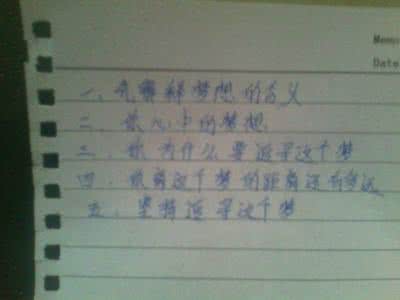 Memo
Date
一、先解释梦想的含义
二、你心中的梦想
三、你为什么要追寻这个梦
四、你离这个梦的距离还有多远
五、坚持追寻这个梦